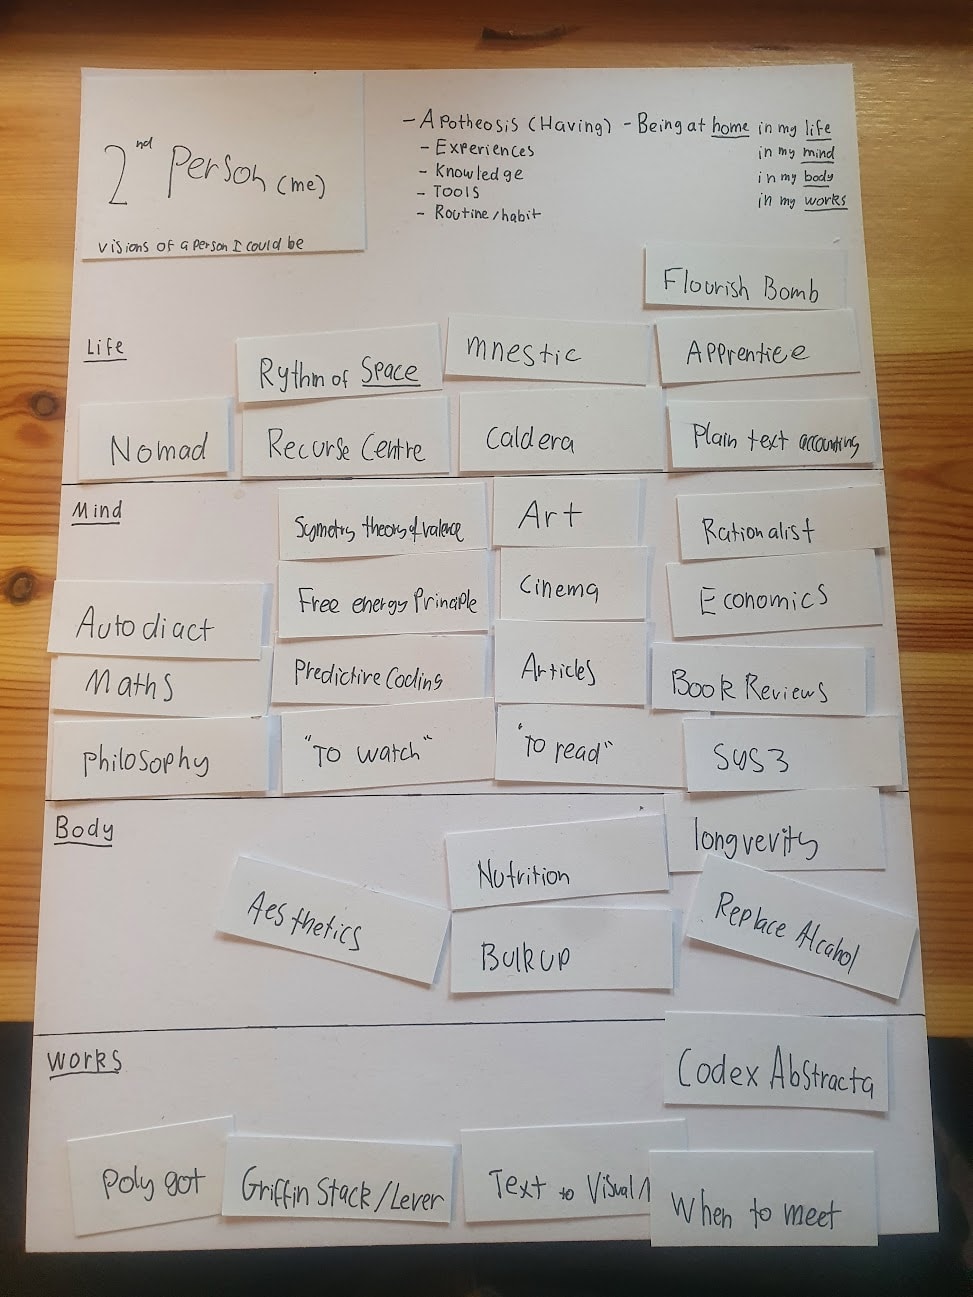 2nd Person (me)
visions of a person I could be
- Apotheosis (Having) - Being at home in my life
- Experiences in my mind
- Knowledge in my body
- Tools in my works
- Routine/habit
Flourish Bomb
Life
Rythm of Space
mnestic
Apprentice
Nomad
Recurse Centre
Caldera
Plain text accounting
Mind
Symetry theory of valence
Art
Rationalist
Autodiact
Free energy Principle
Cinema
Economics
Maths
Predictive Coding
Articles
Book Reviews
Philosophy
"To watch"
"To read"
SyS3
Body
longvevity
Nutrition
Aesthetics
Bulk up
Replace Alcahol
Works
Codex Abstracta
Poly got
Griffin Stack/Lever
Text to Visual
When to meet